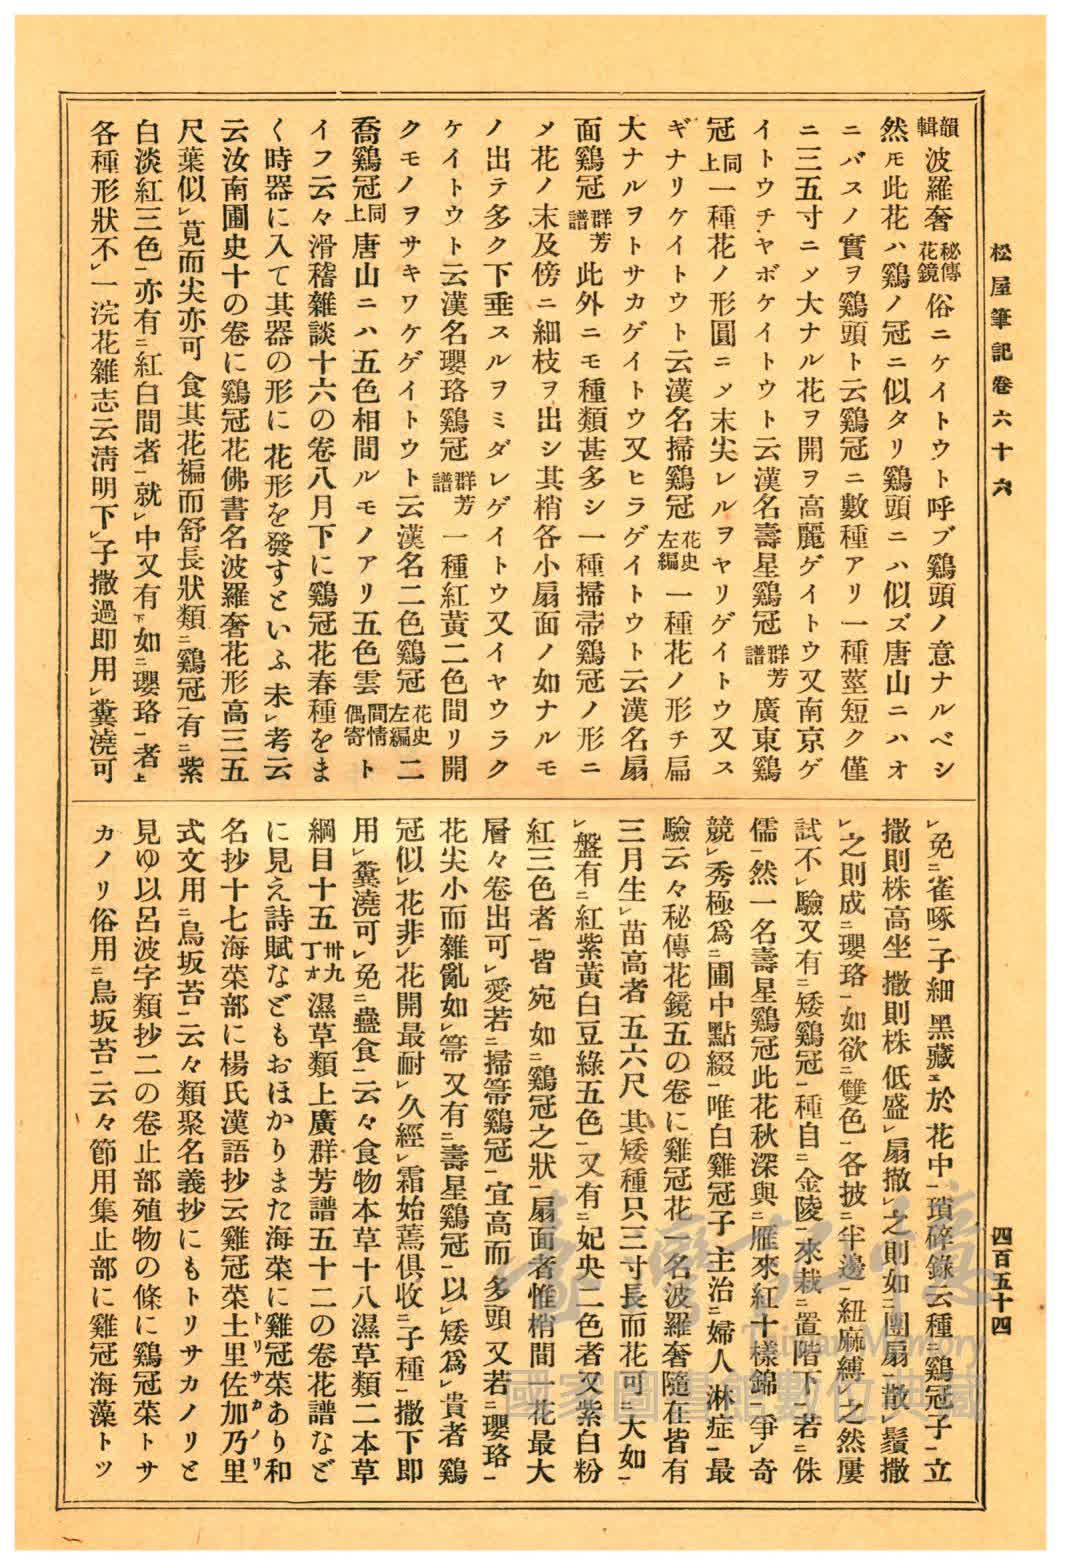 松屋筆記卷六十六
四百五十四
韻輯波羅奢秘傳花鏡俗ニケイトウト呼ブ鷄頭ノ意ナルベシ
然モ此花ハ鷄ノ冠ニ似タリ鷄頭ニハ似ズ唐山ニハオ
ニバスノ實ヲ鷄頭ト云鷄冠ニ數種アリ一種莖短ク僅
ニ三五寸ニメ大ナル花ヲ開ヲ高麗ゲイトウ又南京ゲ
イトウチヤボケイトウト云漢名壽星鷄冠群芳譜廣東鷄
冠同上一種花ノ形圓ニメ末尖レルヲヤリゲイトウ又ス
ギナリケイトウト云漢名掃鷄冠花史左編一種花ノ形チ扁
大ナルヲトサカゲイトウ又ヒラゲイトウト云漢名扇
面鷄冠群芳譜此外ニモ種類甚多シ一種掃帚鷄冠ノ形ニ
メ花ノ末及傍ニ細枝ヲ出シ其梢各小扇面ノ如ナルモ
ノ出テ多ク下垂スルヲミダレゲイトウ又イヤウラク
ケイトウト云漢名瓔珞鷄冠群芳譜一種紅黃二色間リ開
クモノヲサキワケゲイトウト云漢名二色鷄冠花史左編二
喬鷄冠同上唐山ニハ五色相間ルモノアリ五色雲間情偶寄ト
イフ云々滑稽雜談十六の卷八月下に鷄冠花春種をま
く時器に入て其器の形に花形を發すといふ未レ考云
云汝南圃史十の卷に鷄冠花佛書名波羅奢花形高三五
尺葉似レ莧而尖亦可食其花褊而舒長狀類ニ鷄冠一有ニ紫
白淡紅三色一亦有ニ紅白間者一就レ中又有下如ニ瓔珞一者上
各種形狀不レ一浣花雜志云淸明下レ子撒過即用レ糞澆可
レ免ニ雀啄一子細黑藏ニ於花中一瑣碎錄云種ニ鷄冠子一立
撒則株高坐撒則株低盛レ扇撒レ之則如ニ團扇一散レ鬚撒
レ之則成ニ瓔珞一如欲ニ雙色一各披ニ半邊一紐麻縛レ之然屢
試不レ驗又有ニ矮鷄冠一種自ニ金陵一來栽ニ置階下一若ニ侏
儒一然一名壽星鷄冠此花秋深與ニ雁來紅十樣錦一爭レ奇
競レ秀極爲ニ圃中點綴一唯白雞冠子主治ニ婦人淋症一最
驗云々秘傳花鏡五の卷に雞冠花一名波羅奢隨在皆有
三月生レ苗高者五六尺其矮種只三寸長而花可ニ大如一
レ盤有ニ紅紫黃白豆綠五色一又有ニ妃央二色者又紫白粉
紅三色者一皆宛如ニ鷄冠之狀一扇面者惟梢間一花最大
層々卷出可レ愛若ニ掃箒鷄冠一宜高而多頭又若ニ瓔珞一
花尖小而雜亂如レ箒又有ニ壽星鷄冠一以レ矮爲レ貴者鷄
冠似レ花非レ花開最耐レ久經レ霜始蔫俱收ニ子種一撒下即
用レ糞澆可レ免ニ蟲食一云々食物本草十八濕草類二本草
綱目十五卅九丁オ濕草類上廣群芳譜五十二の卷花譜など
に見え詩賦などもおほかりまた海菜に雞冠菜トリサカノリあり和
名抄十七海菜部に楊氏漢語抄云雞冠菜土里佐加乃里
式文用ニ鳥坂苔一云々類聚名義抄にもトリサカノリと
見ゆ以呂波字類抄二の卷止部殖物の條に鷄冠菜トサ
カノリ俗用ニ鳥坂苔一云々節用集止部に雞冠海藻トツ
臺灣記憶
Taiwan Memory
國家圖書館數位典藏